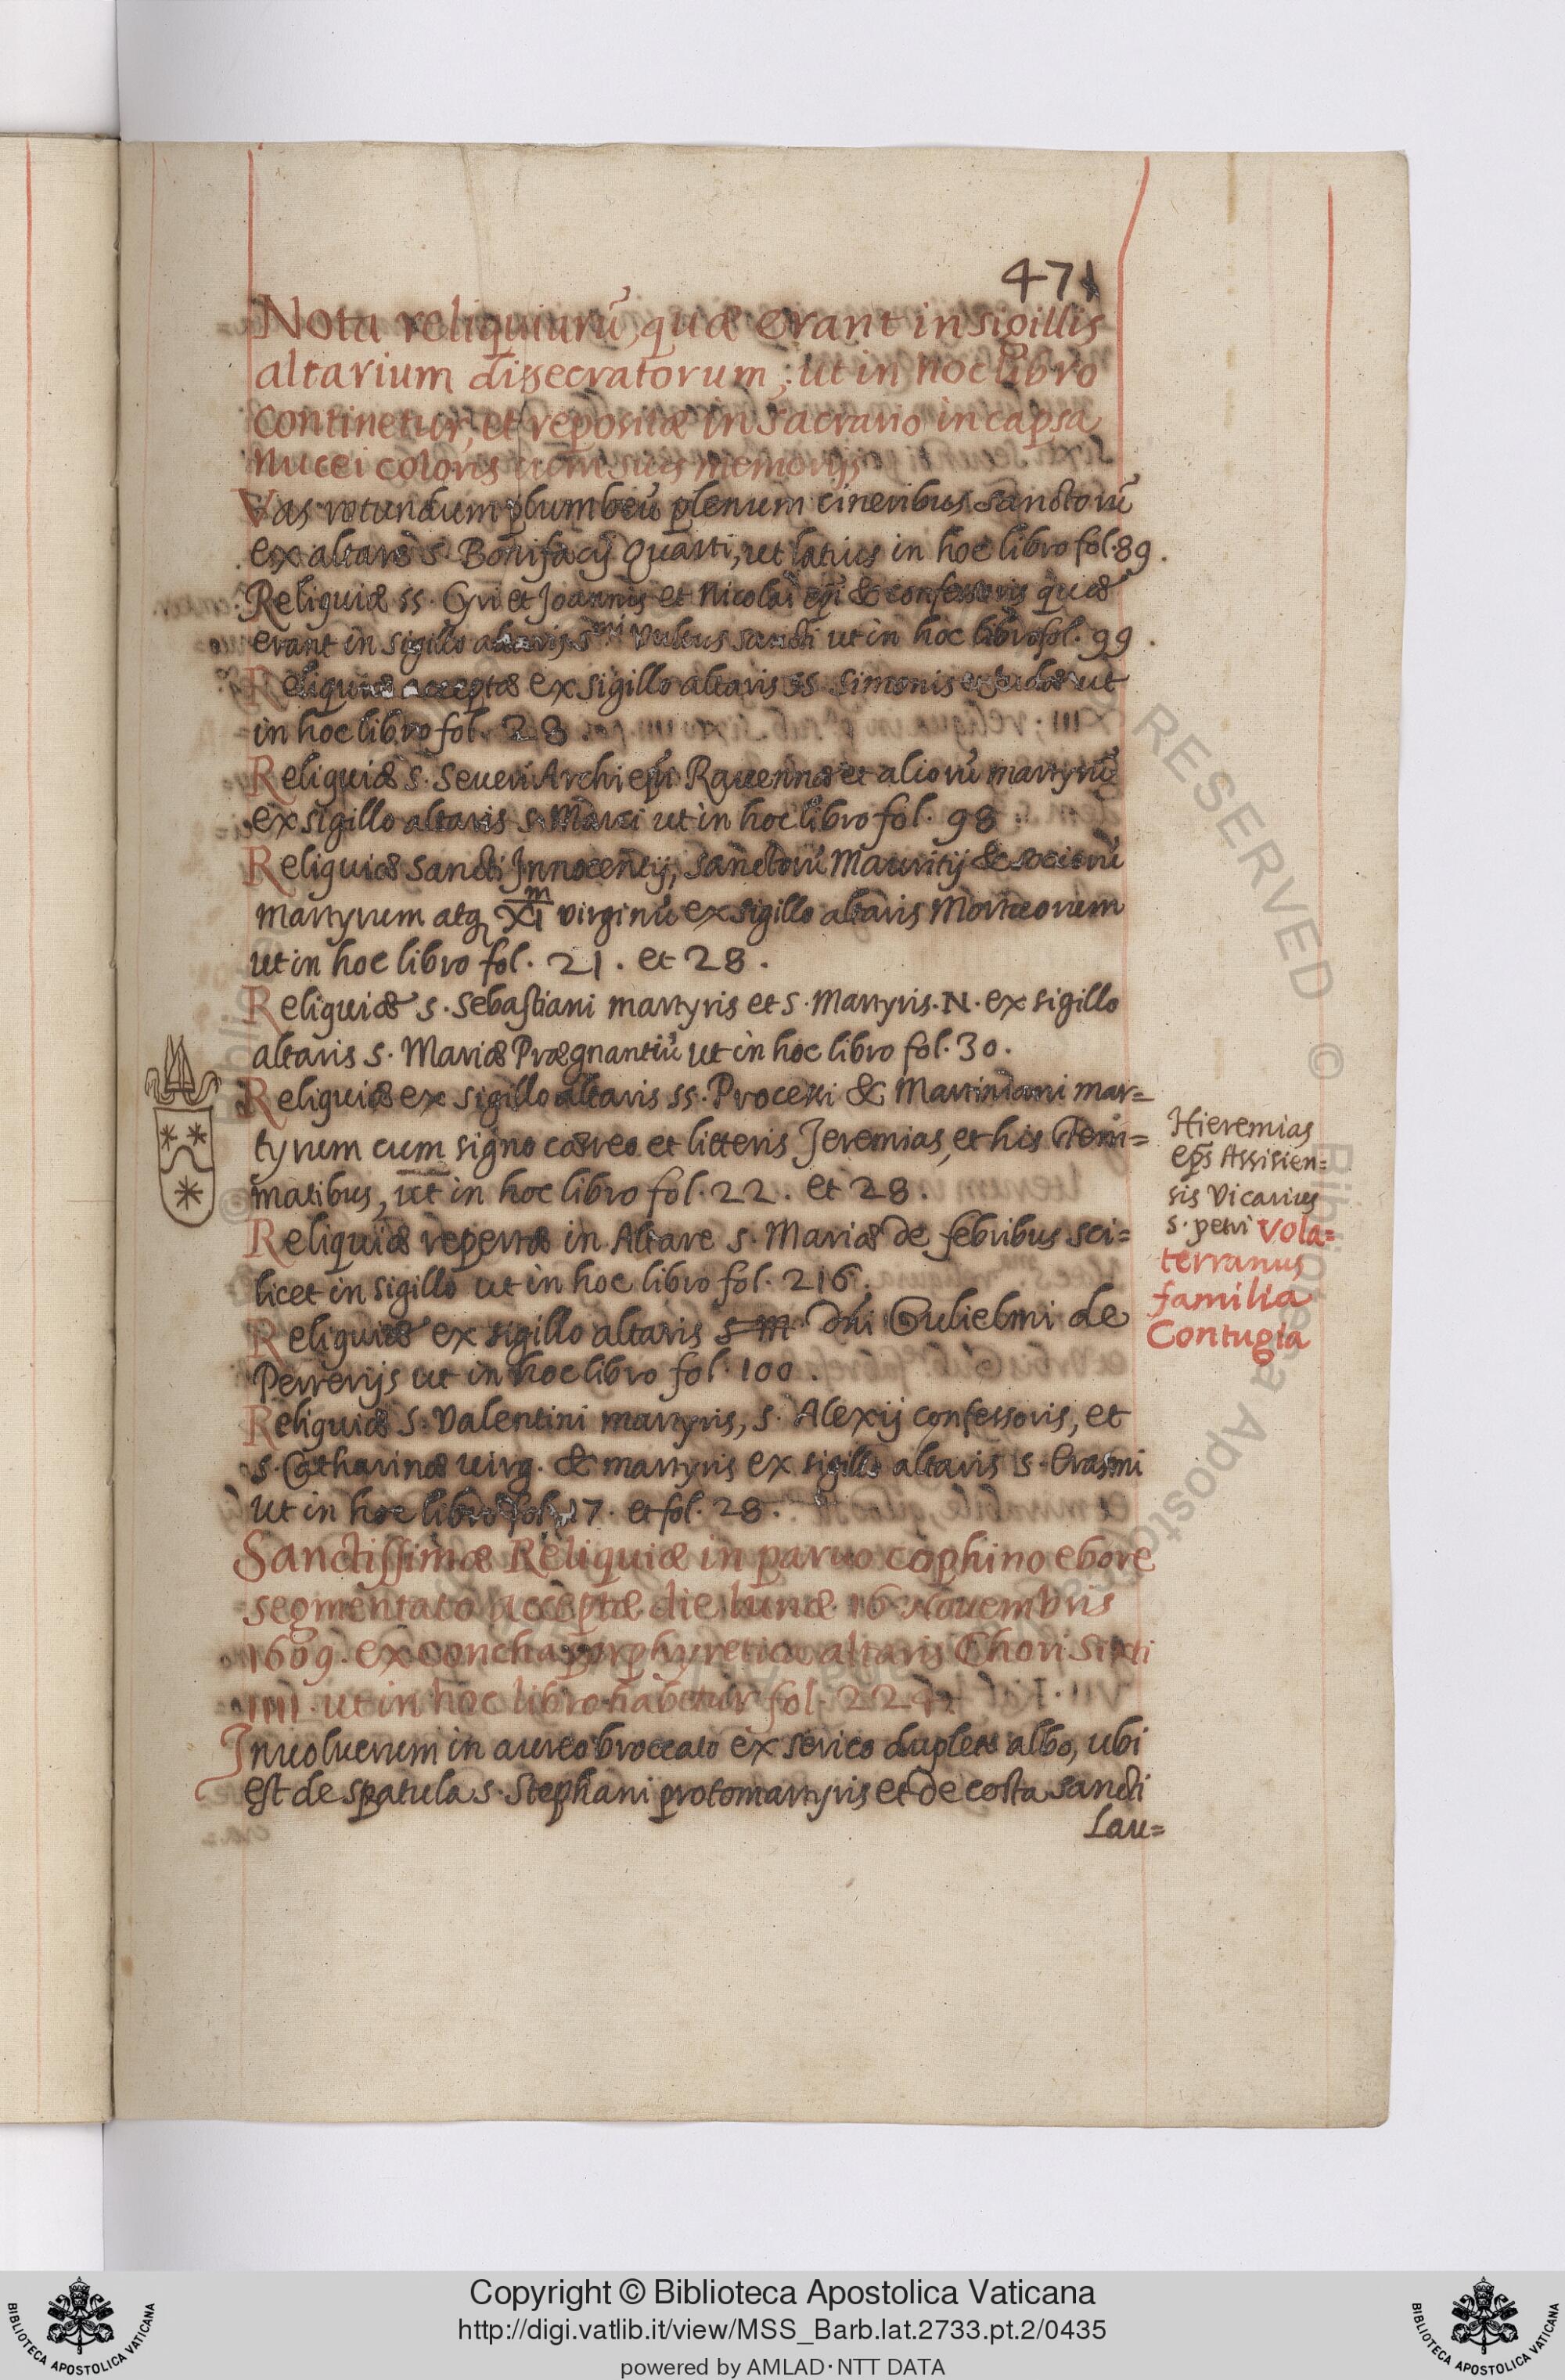 471
Nota reliquiarū, quæ erant in sigillis
altarium dissecratorum; ut in hoc libro
continetur, et repositæ in sacrario in capsa
nucei coloris cum suis memorijs
Vas rotundum plumbeū plenum cineribus sanctorū
ex altare s. Bonifacij Quarti, ut latius in hoc libro fol. 89.
Reliquiæ ss. Cyri et Joannis et Nicolai ep̄i & confessoris quæ
erant in sigillo altaris s.mi Vultus sancti ut in hoc libro fol. 99.
Reliquiæ acceptæ ex sigillo altaris ss. Simonis et Judæ ut
in hoc libro fol. 28.
Reliquiæ s. Seueri Archiep̄i Rauennæ et aliorū martyrū
ex sigillo altaris s. Marci ut in hoc libro fol. 98.
Reliquiæ sancti Innocentij, sanctorū Mauritij & sociorū
martyrum atq XI m virginū ex sigillo altaris Mortuorum
ut in hoc libro fol. 21. et 28.
Reliquiæ s. Sebastiani martyris et s. Martyris. N. ex sigillo
altaris s. Mariæ Prægnantiū ut in hoc libro fol. 30.
Reliquiæ ex sigillo altaris ss. Processi & Martiniani mar=
tyrum cum signo cæreo et litteris Jeremias, et his stem=
matibus, ut in hoc libro fol. 22. et 28.
Hieremias
ep̄s Assisien=
sis Vicarius
s. petri Vola=
terranus
familia
Contugia
Reliquiæ repertæ in Altare s. Mariæ de febribus sci=
licet in sigillo ut in hoc libro fol. 216.
Reliquiæ ex sigillo altaris s. M. Dn̄i Gulielmi de
Perrerijs ut in hoc libro fol. 100.
Reliquiæ s. Valentini martyris, s. Alexij confessoris, et
s. Catharinæ uirg. & martyris ex sigillo altaris s. Erasmi
ut in hoc libro fol. 17. et fol. 28.
Sanctissimæ Reliquiæ in paruo cophino ebore
segmentato acceptæ die lunæ 16 Nouembris
1609. ex concha porphyretica altaris Chori Sixti
IIII. ut in hoc libro habetur fol. 224.
Inuolucrum in aureo broccato ex serico duplere albo, ubi
est de spatula s. Stephani protomartyris et de costa sancti
Lau=
Copyright © Biblioteca Apostolica Vaticana
http://digi.vatlib.it/view/MSS_Barb.lat.2733.pt.2/0435
powered by AMLAD·NTT DATA
BIBLIOTECA APOSTOLICA VATICANA
BIBLIOTECA APOSTOLICA VATICANA